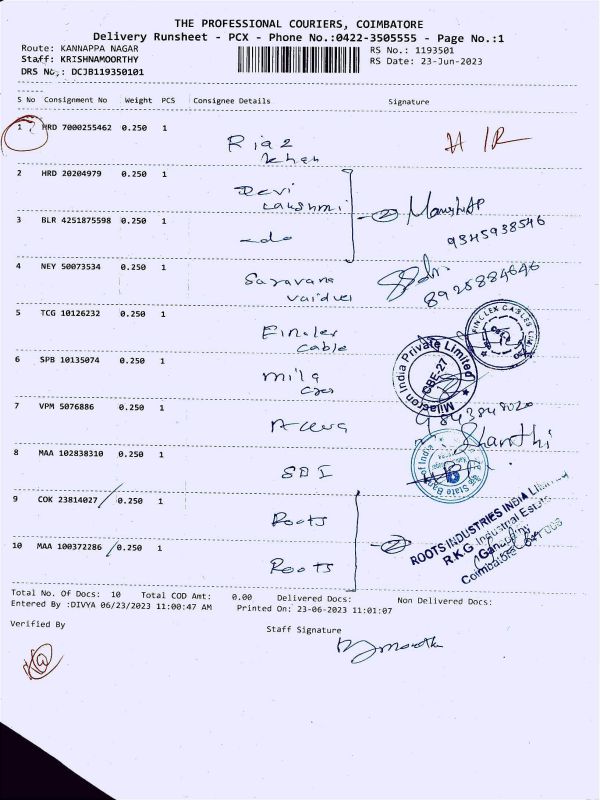 THE PROFESSIONAL COURIERS, COIMBATORE
Delivery Runsheet - PCX - Phone No.:0422-3505555 - Page No.:1
Route: KANNAPPA NAGAR RS No.: 1193501
Staff: KRISHNAMOORTHY RS Date: 23-Jun-2023
DRS No.: DCJB119350101
S No Consignment No Weight PCS Consignee Details Signature
1 HRD 7000255462 0.250 1 Riaz
khan
2 HRD 20204979 0.250 1 Devi
Lakshmi
3 BLR 4251875598 0.250 1 -do
9345938546
4 NEY 50073534 0.250 1 Saravana
8925884646
5 TCG 10126232 0.250 1
Cable
6 SPB 10135074 0.250 1 mila
Milacron India Private Limited
CBE-27
7 VPM 5076886 0.250 1
8 MAA 102838310 0.250 1 SBI
Shanthi
State Bank of India
9 COK 23814027 0.250 1 Roots
10 MAA 100372286 0.250 1 Roots
ROOTS INDUSTRIES INDIA LIMITED
R.K.G. Industrial Estate
Ganapathy
Coimbatore
Total No. Of Docs: 10 Total COD Amt: 0.00 Delivered Docs: Non Delivered Docs:
Entered By :DIVYA 06/23/2023 11:00:47 AM Printed On: 23-06-2023 11:01:07
Verified By Staff Signature